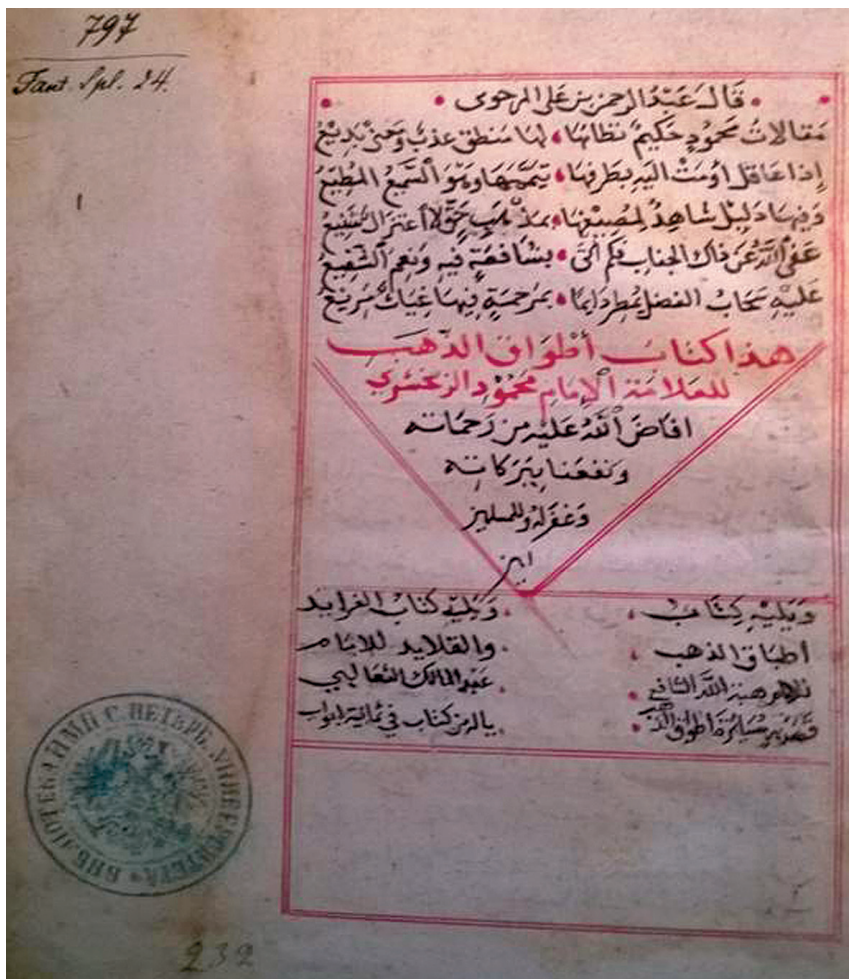 797
Tant. Spl. 24.
قال عبد الرحمن بن علي المرحوي
مقالات محمود حكيم نظامها لها منطق عذب ومعنى بديع
إذا عاقل أومت اليه بطرفها وهو السميع المطيع
وفيها دليل شاهد اعتزال شنيع
عفى الله عن ذاك الجناب فكم اتى بشافعة فيه ونعم الشفيع
عليه سحاب الفضل يمطر دايما بمرحمة فيها غياث مريع
هذا كتاب أطواق الذهب
للعلامة الإمام محمود الزمخشري
افاض الله عليه من رحماته
ونفعنا ببركاته
وغفر له وللمسلمين
امين
ويليه كتاب
أطباق الذهب
هبة الله الشافعي
أطواق الذهب
ويليه كتاب الفرايد
والقلايد للامام
عبد المالك الثعالبي
كتاب في ثمانية ابواب
БИБЛІОТЕКА ИМП. С. ПЕТЕРБ. УНИВЕРСИТЕТА
232